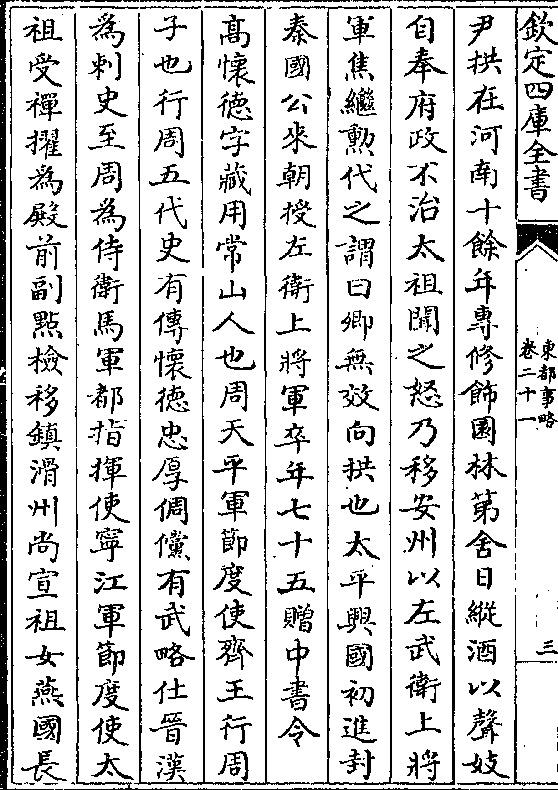 欽定四庫全書
東都事略
卷二十一
三
尹拱在河南十餘年專修飾園林第舍日縱酒以聲妓
自奉府政不治太祖聞之怒乃移安州以左武衛上將
軍焦繼勲代之謂曰卿無效向拱也太平興國初進封
秦國公來朝授左衛上將軍卒年七十五贈中書令
髙懷德字藏用常山人也周天平軍節度使齊王行周
子也行周五代史有傳懷徳忠厚倜儻有武略仕晉漢
為刺史至周為侍衛馬軍都指揮使寧江軍節度使太
祖受禪擢為殿前副點檢移鎮滑州尚宣祖女燕國長